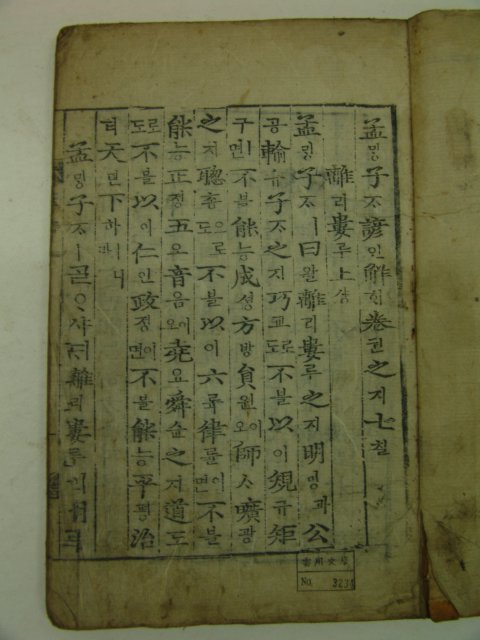 孟ᄆᆡᆼ子ᄌᆞ諺언解ᄒᆡ卷권之지七칠
離리婁루上샹
孟ᄆᆡᆼ子ᄌᆞㅣ曰왈離리婁루之지明명과公
공輸슈子ᄌᆞ之지巧교로도不블以이規규矩
구면不블能능成셩方방員원이오師ᄉᆞ曠광
之지聰총으로도不블以이六륙律률이면不블
能능正졍五오音음이오堯요舜슌之지道도
로도不블以이仁인政졍이면不블能능平평治
티天텬下하ㅣ니라
孟ᄆᆡᆼ子ᄌᆞㅣᄀᆞᆯᄋᆞ샤ᄃᆡ離리婁루의
No. 3234